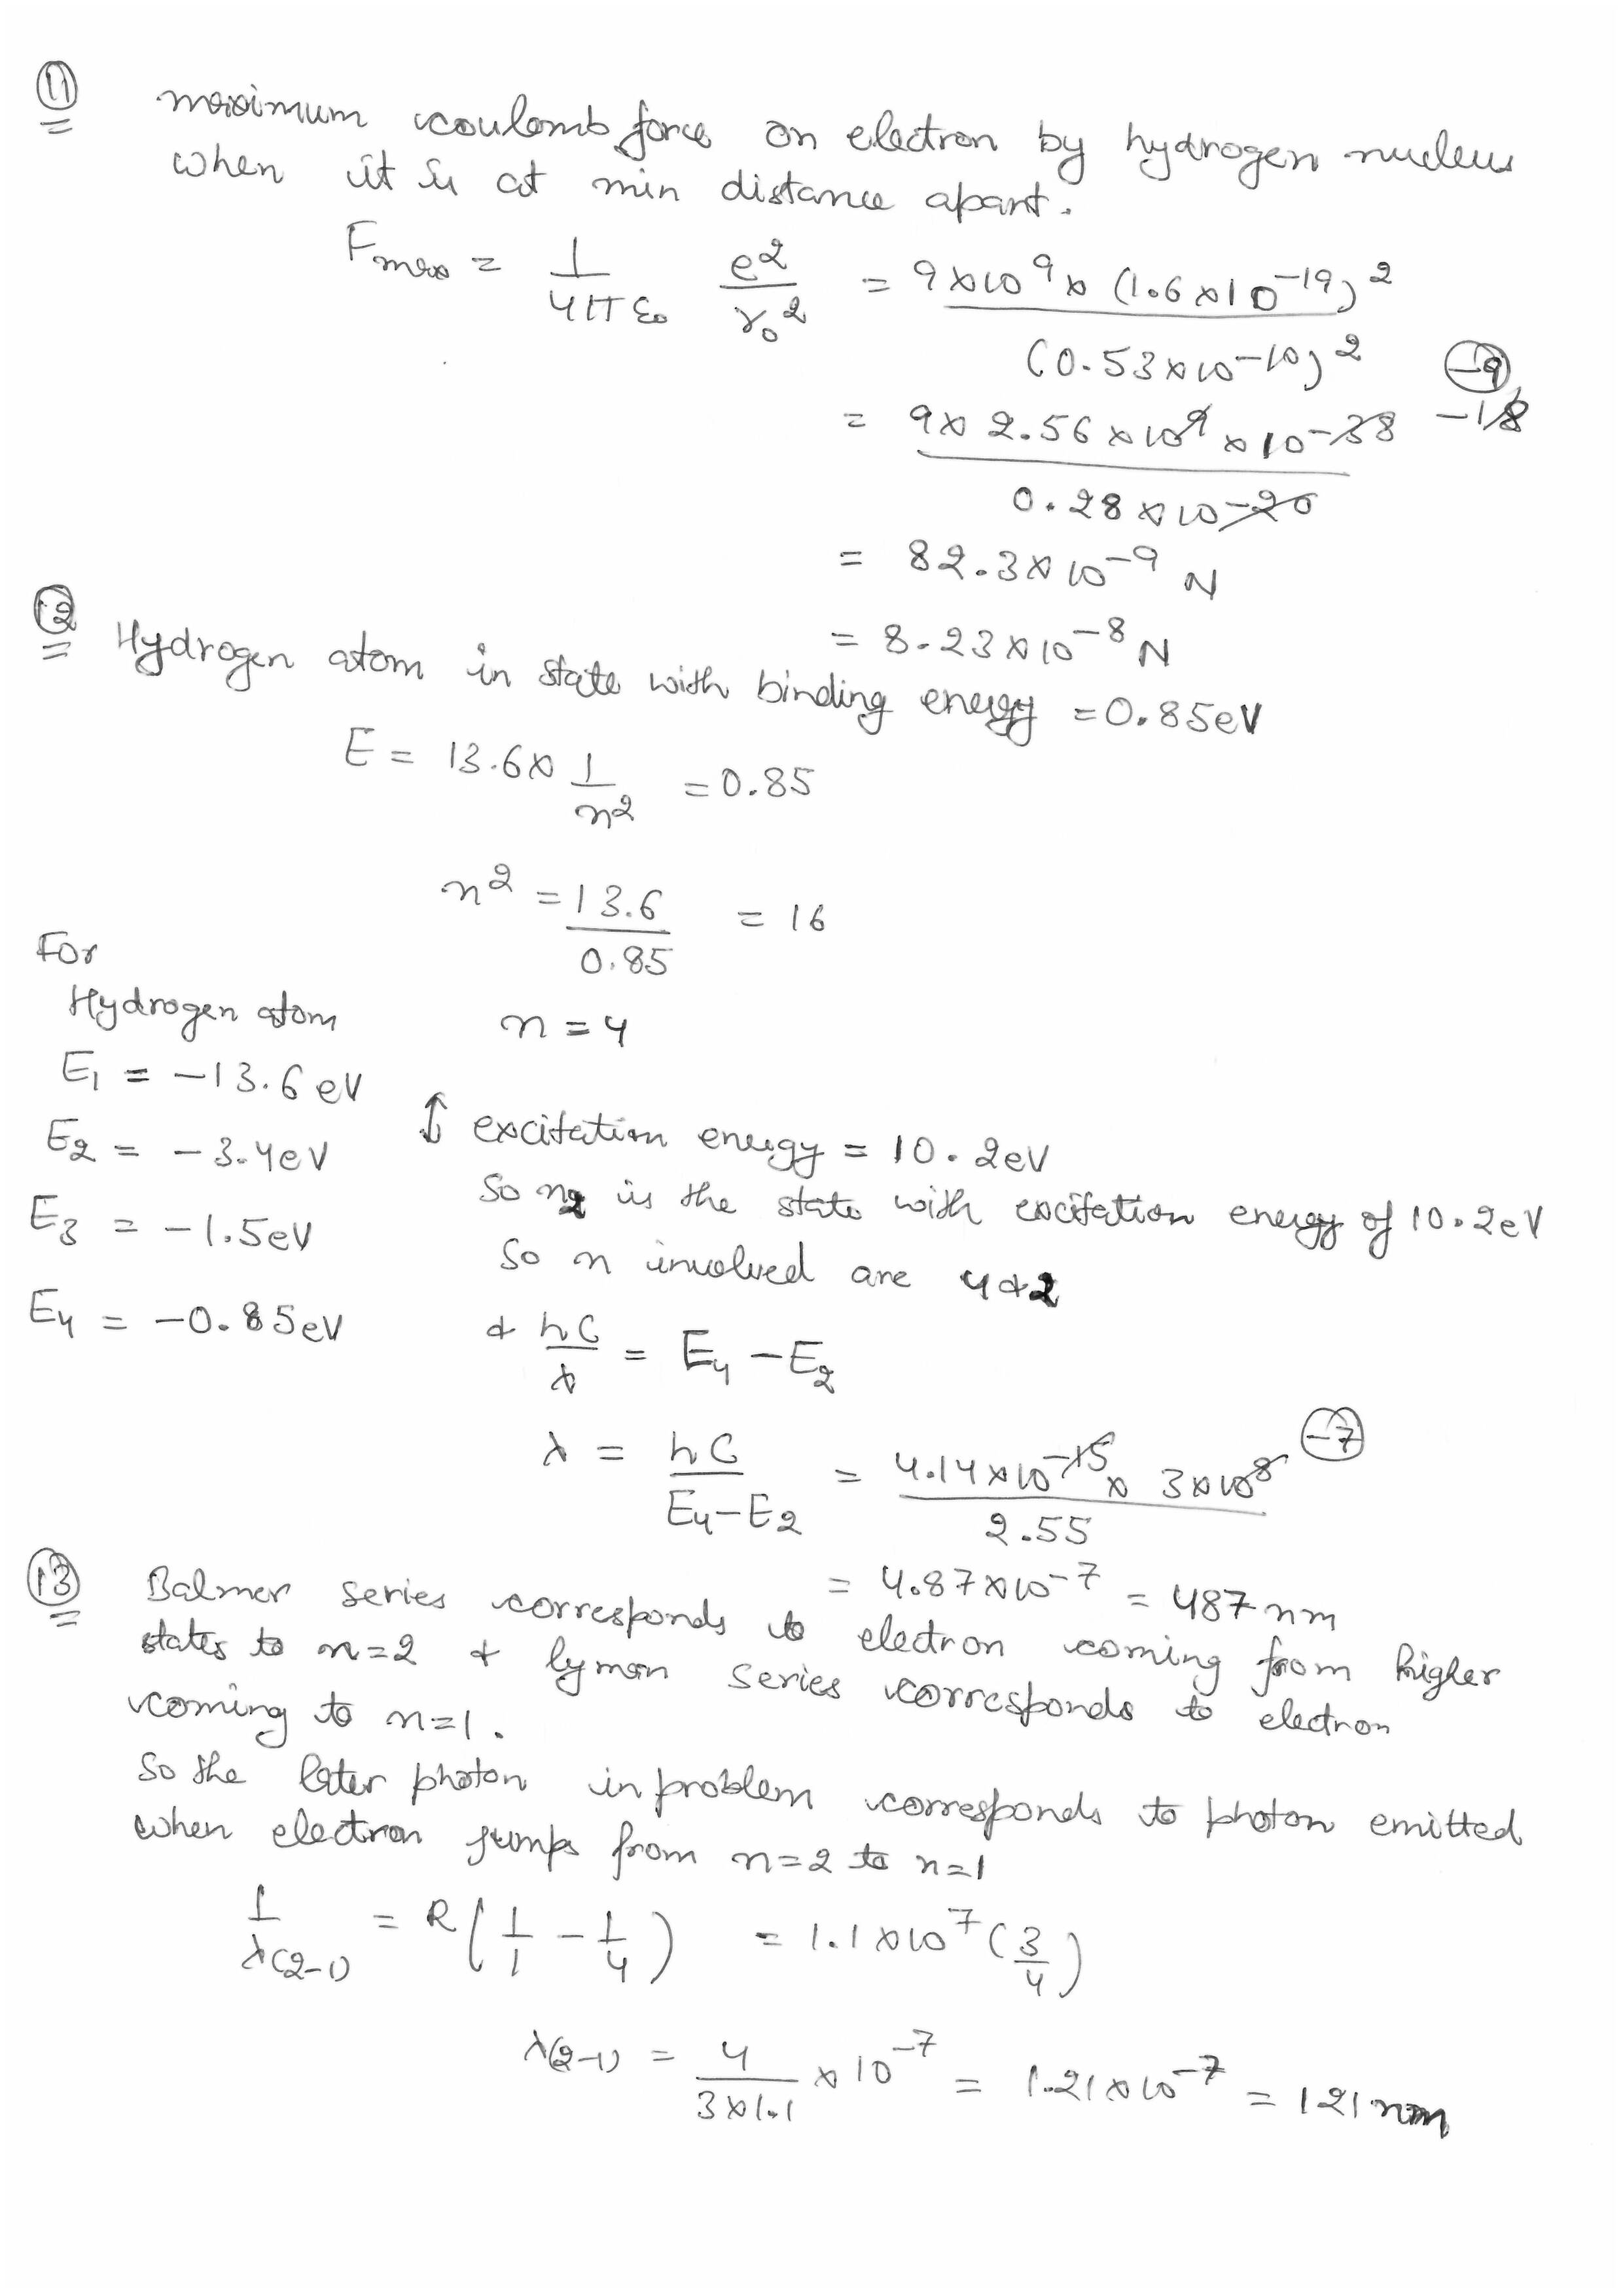 11
maximum coulomb force on electron by hydrogen nucleus
when it is at min distance apart.
Fmax = 1/4πε₀ e²/r₀² = 9×10⁹×(1.6×10⁻¹⁹)²/(0.53×10⁻¹⁰)²
-9
= 9×2.56×10⁹×10⁻³⁸/0.28×10⁻²⁰ -18
= 82.3×10⁻⁹ N
= 8.23×10⁻⁸ N
12 Hydrogen atom in state with binding energy = 0.85eV
E = 13.6× 1/n² = 0.85
n² = 13.6/0.85 = 16
n = 4
For
Hydrogen atom
E₁ = -13.6 eV
E₂ = -3.4eV
E₃ = -1.5eV
E₄ = -0.85eV
↕ excitation energy = 10.2eV
So n2 is the state with excitation energy of 10.2eV
So n involved are 4&2
& hC/λ = E₄ - E₂
λ = hC/E₄-E₂ = 4.14×10⁻¹⁵ × 3×10⁸/2.55 -7
= 4.87×10⁻⁷ = 487nm
13 Balmer series corresponds to electron coming from higher
states to n=2 & lyman series corresponds to electron
coming to n=1.
So the later photon in problem corresponds to photon emitted
when electron jumps from n=2 to n=1
1/λ(2-1) = R(1/1 - 1/4) = 1.1×10⁷(3/4)
λ(2-1) = 4/3×1.1 ×10⁻⁷ = 1.21×10⁻⁷ = 121nm